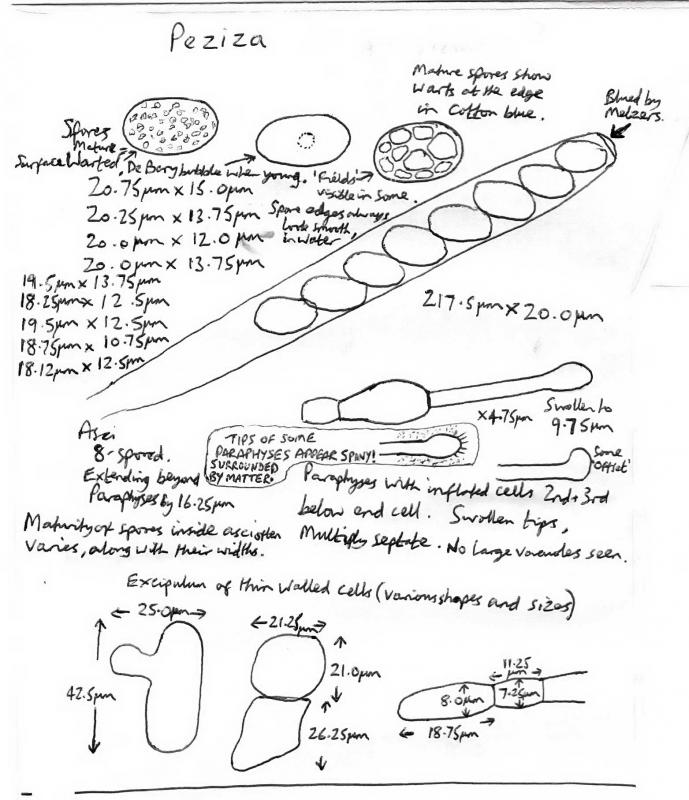 Peziza
Mature spores show
warts at the edge
in Cotton blue.
Blued by
Melzers.
Spores
Mature
Surface Warted.
De Bery bubble when young.
'Fields'
visible in some.
20.75µm x 15.0µm
20.25µm x 13.75µm
20.0µm x 12.0µm
20.0µm x 13.75µm
19.5µm x 13.75µm
18.25µm x 12.5µm
19.5µm x 12.5µm
18.75µm x 10.75µm
18.12µm x 12.5µm
Spore edges always
look smooth,
in water
217.5µm x 20.0µm
x 4.75µm
Swollen to
9.75µm
Some
'offset'
Asci
8-spored.
Extending beyond
Paraphyses by 16.25µm
TIPS OF SOME
PARAPHYSES APPEAR SPINY!
SURROUNDED
BY MATTER.
Paraphyses with inflated cells 2nd + 3rd
below end cell. Swollen tips,
Multiply septate. No large vacuoles seen.
Maturity of spores inside asci often
varies, along with their widths.
Excipulum of thin walled cells (various shapes and sizes)
25.0µm
42.5µm
21.25µm
21.0µm
26.25µm
11.25
µm
8.0µm
7.25µm
18.75µm